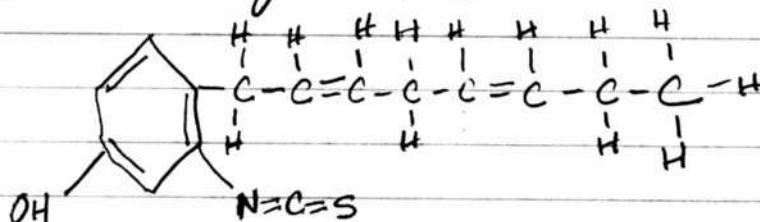 H H H H H H H H
C-C=C-C-C=C-C-C-H
H H H H
OH N=C=S